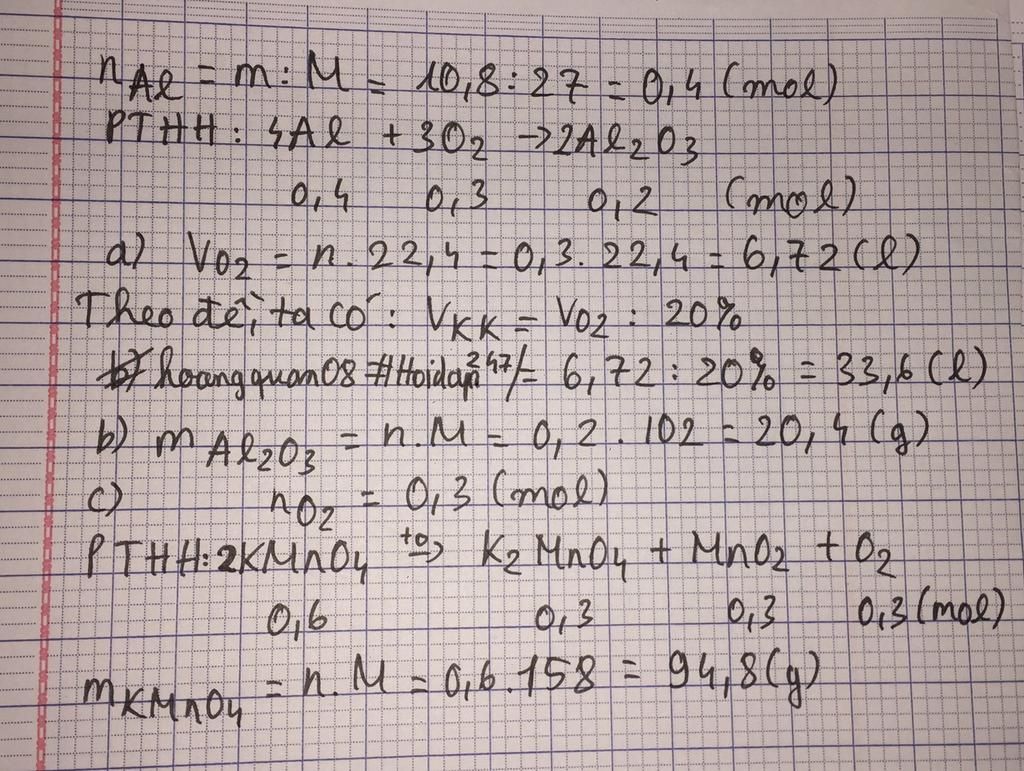 nAl = m : M = 10,8 : 27 = 0,4 (mol)
PTHH : 4Al + 3O2 → 2Al2O3
0,4 0,3 0,2 (mol)
a) VO2 = n . 22,4 = 0,3 . 22,4 = 6,72 (l)
Theo đề, ta có : VKK = VO2 : 20%
hoangquan08 #Hoidap247 = 6,72 : 20% = 33,6 (l)
b) mAl2O3 = n.M = 0,2 . 102 = 20,4 (g)
c) nO2 = 0,3 (mol)
PTHH: 2KMnO4 to→ K2MnO4 + MnO2 + O2
0,6 0,3 0,3 0,3 (mol)
mKMnO4 = n.M = 0,6 . 158 = 94,8 (g)